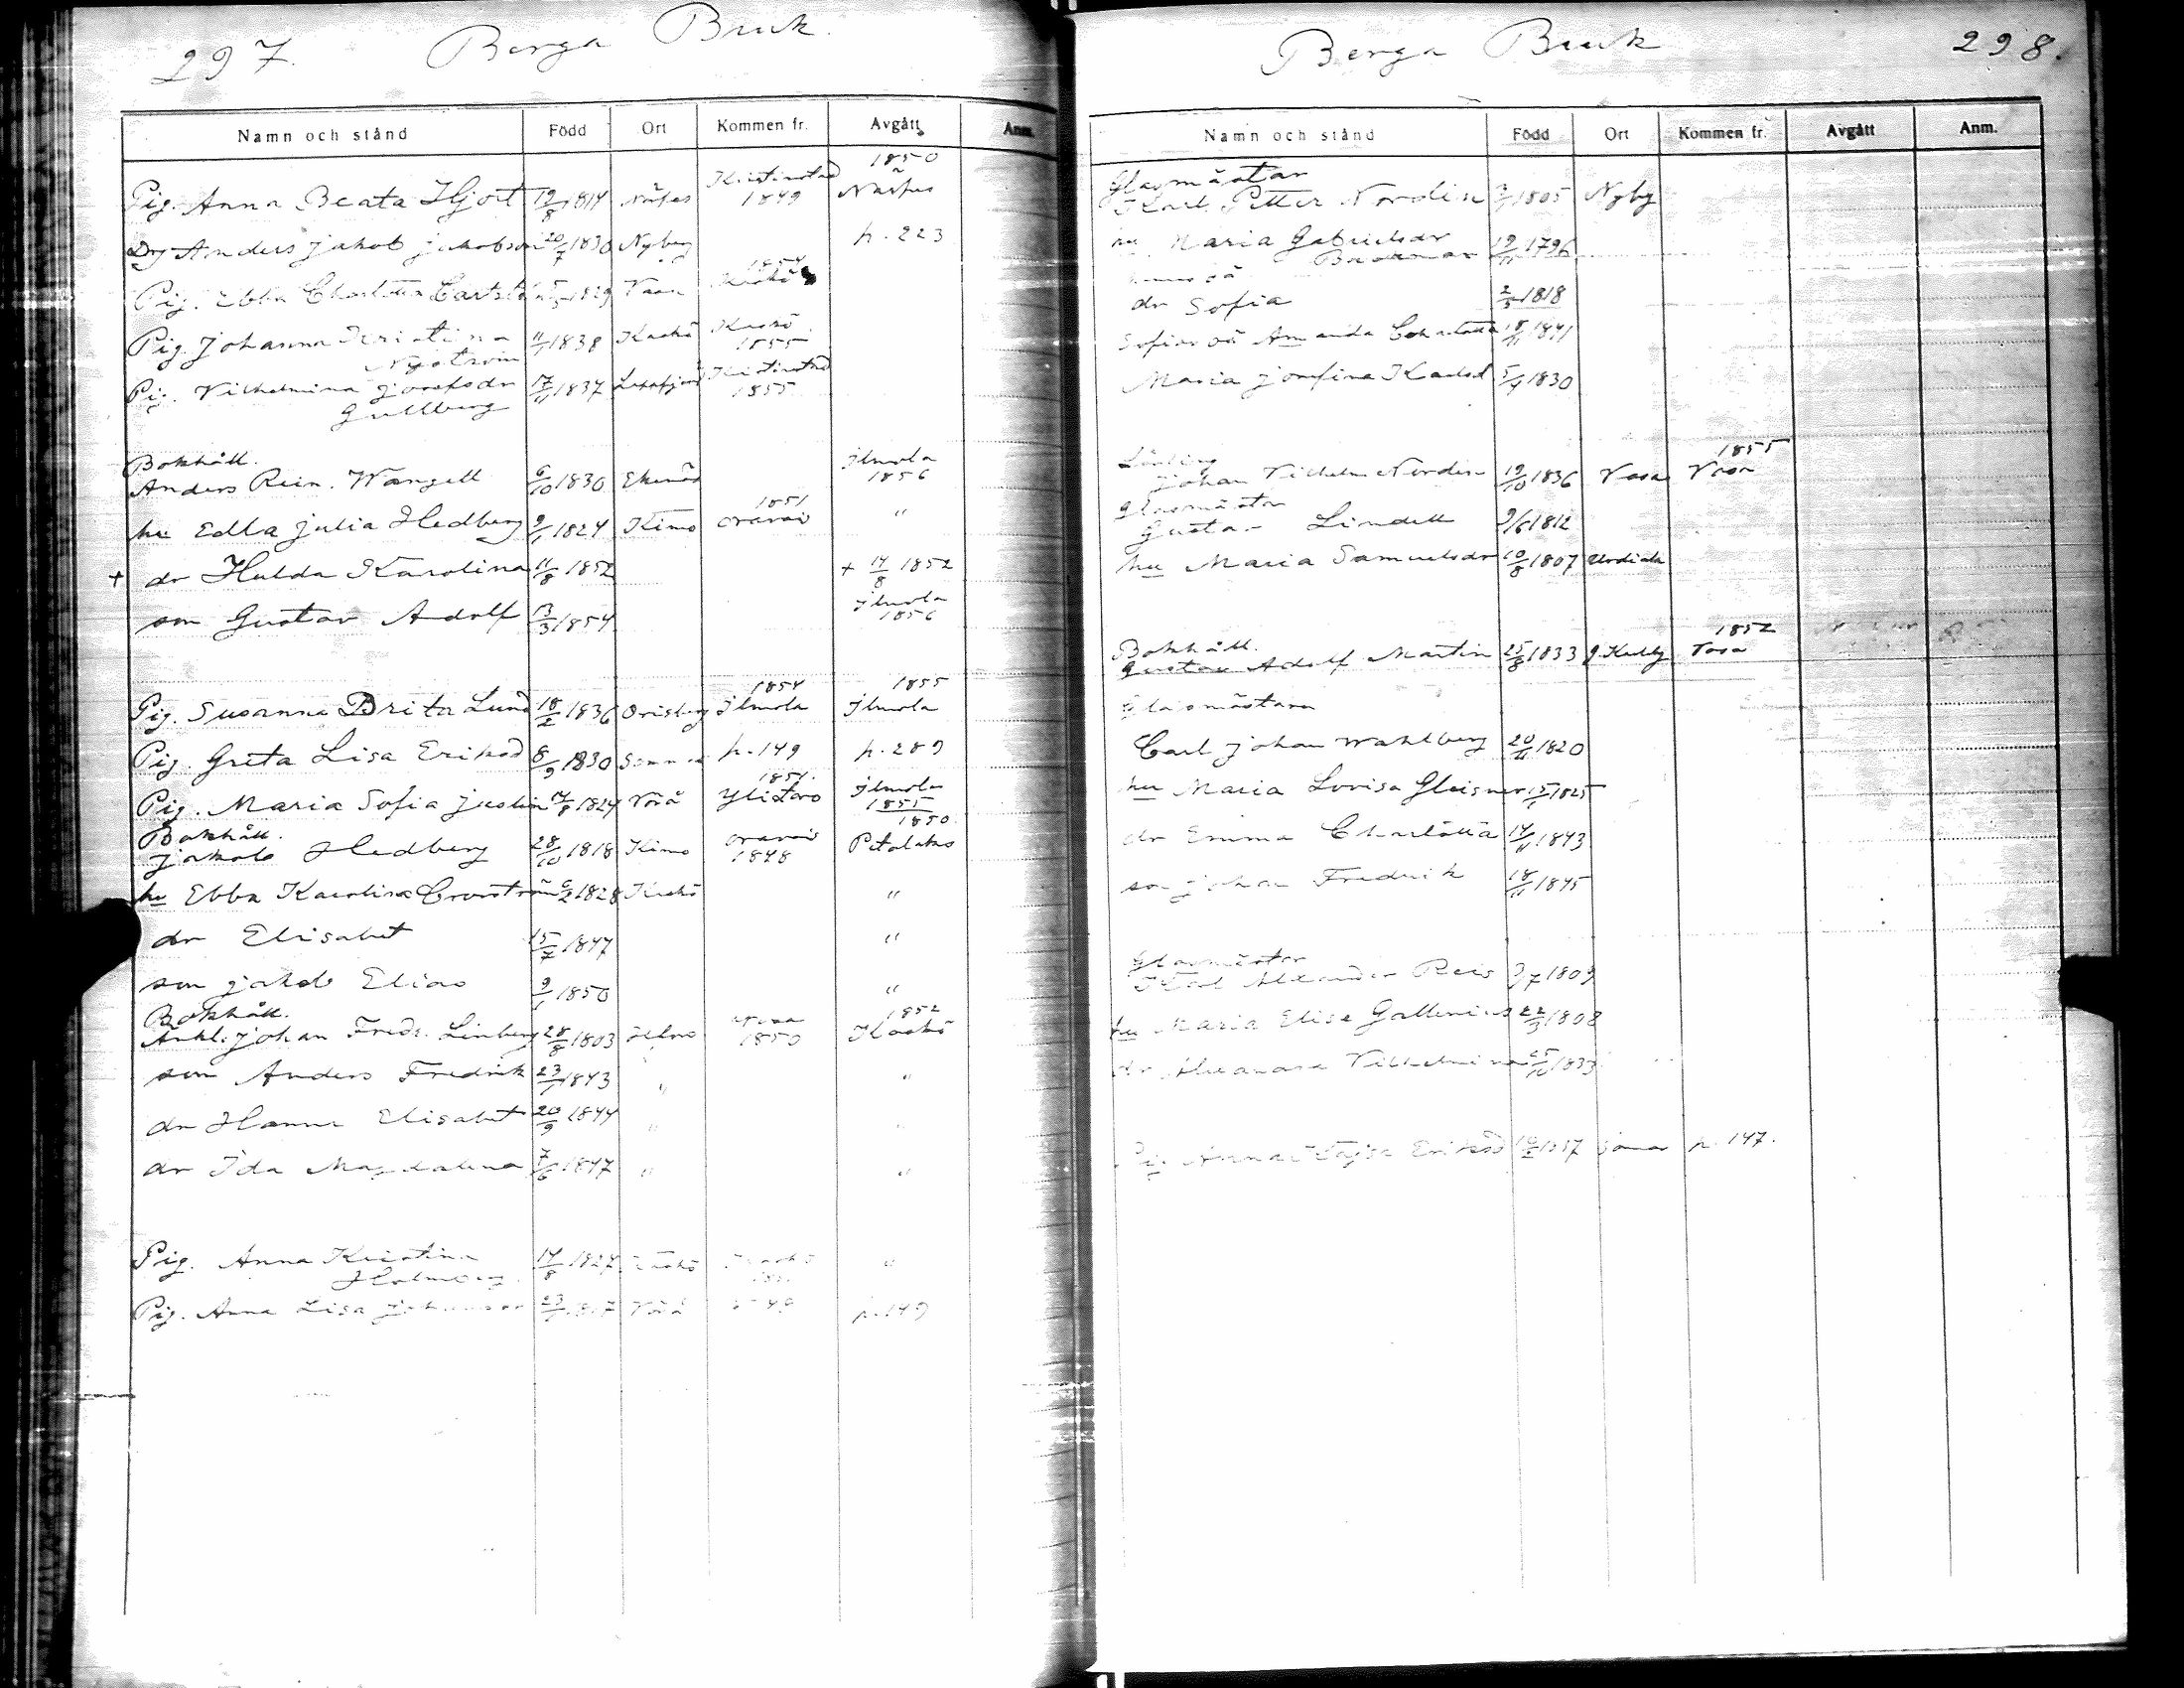 297. Berga Bruk.
Namn och stånd Född Ort Kommen fr. Avgått Anm.
Pig. Anna Beata Hjort 19/8 1814 Näpes Kristinestad 1849 1850 Närpes
Drg Anders Jakob Jakobson 20/7 1830 Nyberg p. 223
Pig. Ebba Charlotta 1829 Vasa 1854
Pig. Johanna Kristina 11/1 1838 Kaskö Kaskö 1855
Nyström
Pig. Vilhelmina Josefsdr 17/11 1837 Lappfjärd Kristinestad 1855
Gullberg
Bokhåll.
Anders Rein. Wangell 6/10 1830 Ekenäs Ilmola 1856
hu Edla Julia Hedberg 9/1 1824 Kimo 1851 Oravais "
+ dr Hulda Karolina 11/8 1852 + 14/8 1852
son Gustav Adolf 13/3 1854 Ilmola 1856
Pig. Susanna Brita Lund 18/2 1836 Orisberg 1854 Ilmola 1855 Ilmola
Pig. Greta Lisa Eriksd 8/9 1830 p. 149 p. 289
Pig. Maria Sofia Juslin 1824 Vörå 1851. Ylistaro Ilmola 1855
Bokhåll.
Jakob Hedberg 28/10 1818 Kimo Oravais 1848 1850. Petalaks
hu Ebba Karolina 1828 Kaskö "
dr Elisabet 15/7 1847 "
son Jakob Elias 9/1 1850 "
Bokhåll.
Johan Fredr. Linberg 28/8 1803 1850 1852 Kaskö
son Anders Fredrik 23/1 1843 " "
dr Hanna Elisabet 20/9 1844 " "
dr Ida Magdalena 7/6 1847 " "
Pig. Anna Kristina 14/8 1827 Kaskö "
Holmberg
Pig. Anna Lisa 23 Vörå p. 149
Berga Bruk 298.
Namn och stånd Född Ort Kommen fr. Avgått Anm.
Glasmästar
Karl Petter Nordin 1805 Nyby
hu Maria Gabrielsdr 19/11 1796
dr Sofia 2/3 1818
Sofias oä Amanda Charlotta 18/11 1841
Maria Josefina Karlsd 5/4 1830
Lärling
Johan Vilhelm Nordin 19/10 1836 Vasa 1855 Vasa
Glasmästar
Gustav Lindell 9/6 1812
hu Maria Samuelsdr 10/8 1807 Urdiala
Bokhåll.
Gustav Adolf Martin 25/8 1833 1852 Vasa
Glasmästarn
Carl Johan Wahlberg 20/11 1820
hu Maria Lovisa Gleisner 15/1 1825
dr Emma Charlotta 14/11 1843
son Johan Fredrik 18/11 1845
Glasmästar
Karl Alexander Reis 9/7 1809
hu Maria Elise Gallenius 22/3 1808
dr Vilhelmina 25/10 1833
Pig Anna Kajsa Eriksd p. 147.